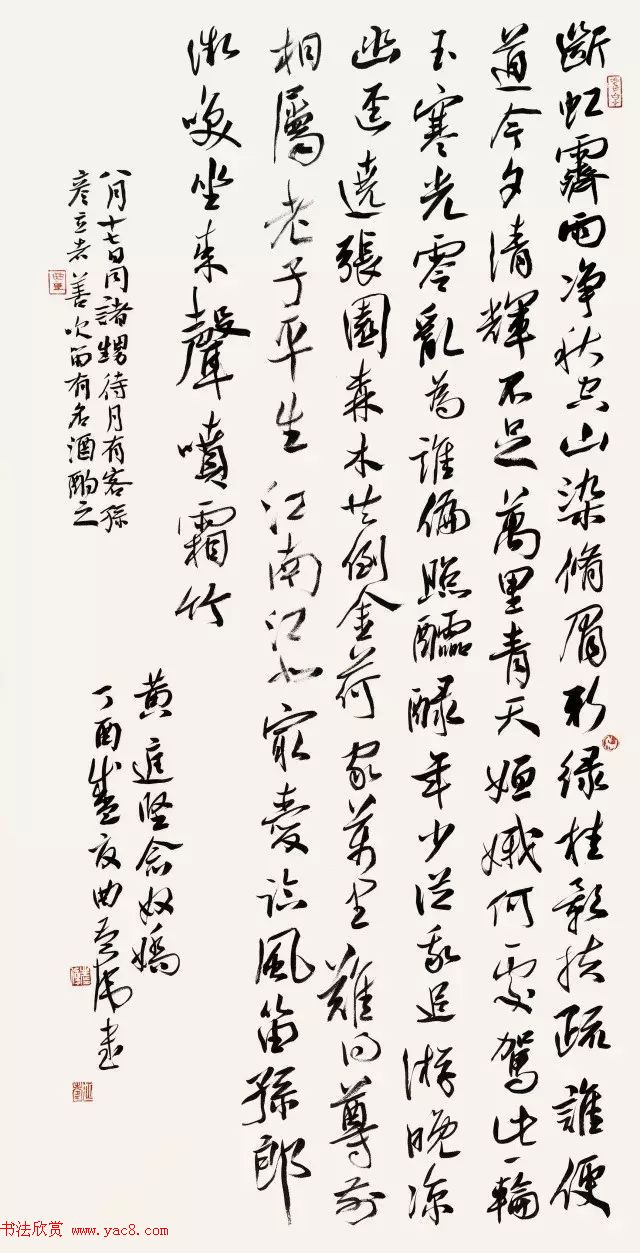 斷虹霽雨净秋空山染脩眉新緑桂影扶疏誰便
道今夕清輝不足萬里青天姮娥何處駕此一輪
玉寒光零亂為誰偏照醽醁年少從我追游晚凉
幽逕遶張園森木共倒金荷家萬里難得尊前
相屬老子平生江南江北最愛臨風笛孫郎
微笑坐來聲噴霜竹
八月十七日同諸甥待月有客孫
彦立者善吹笛有名酒酌之
黄庭堅念奴嬌
丁酉盛夏曲書
书法欣赏 www.yac8.com